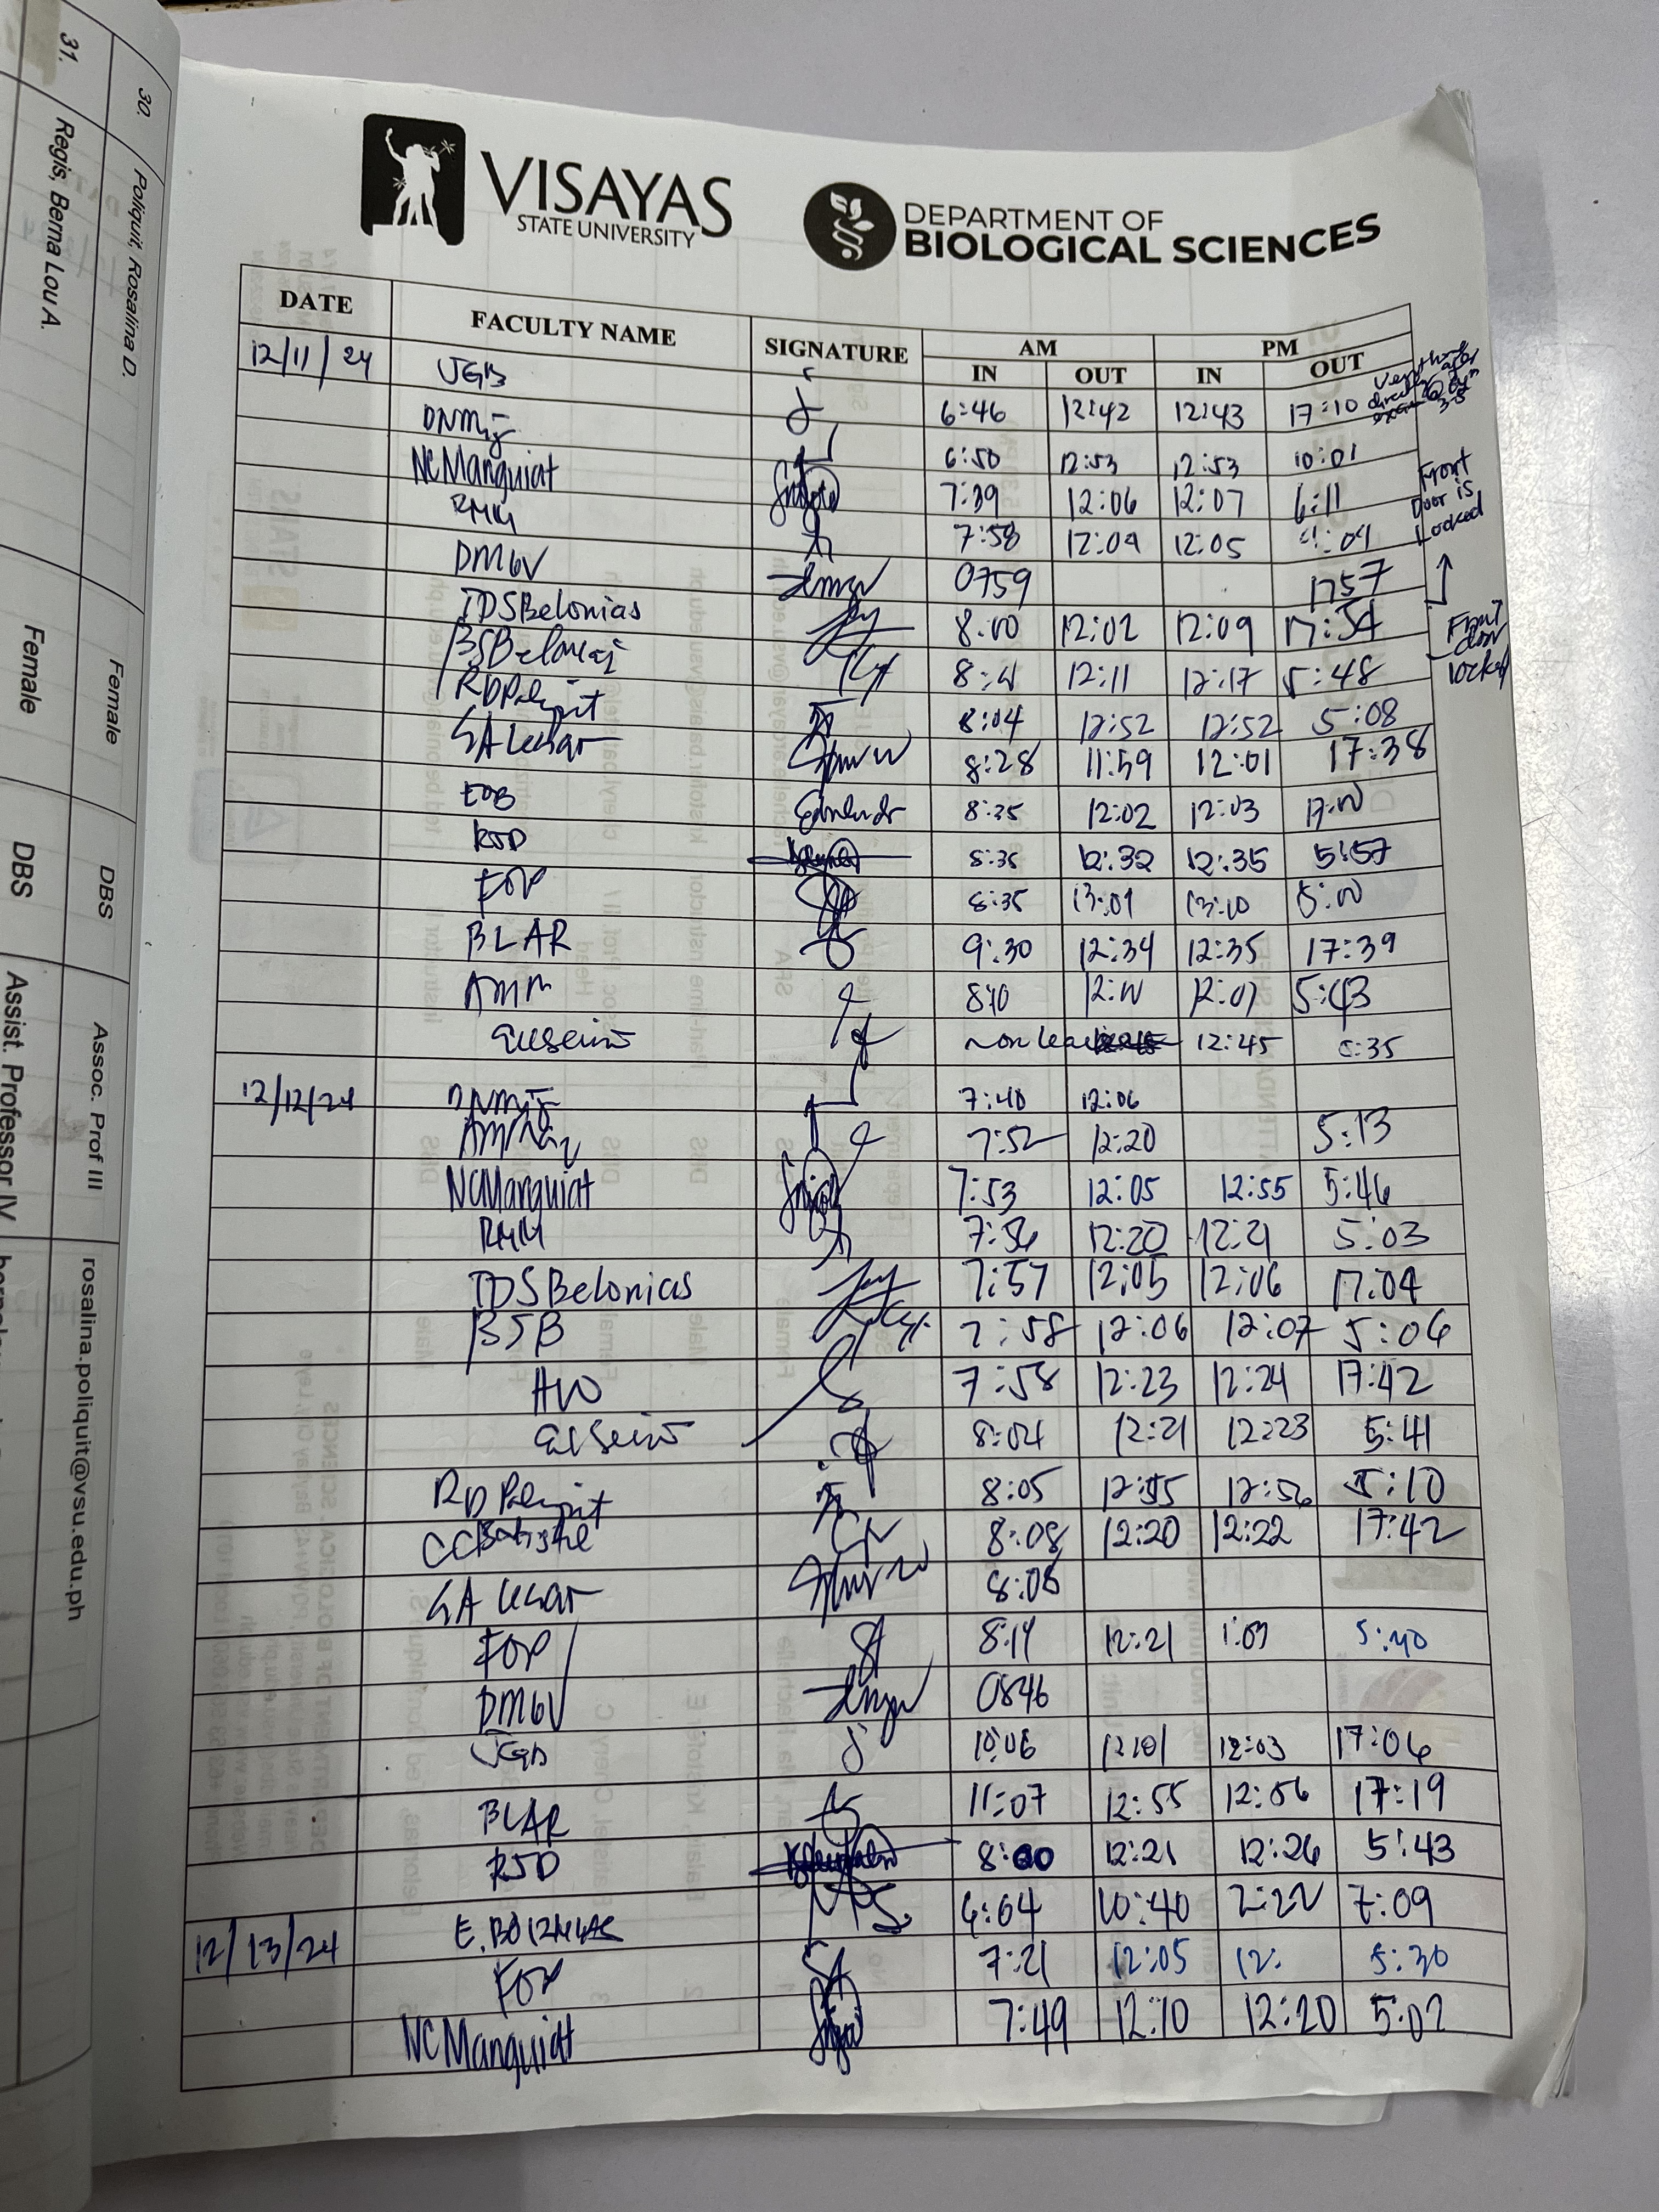 31. Regis, Berna Lou A. Female DBS Assist. Professor IV
30. Poliquit, Rosalina D. Female DBS Assoc. Prof III rosalina.poliquit@vsu.edu.ph
VISAYAS
STATE UNIVERSITY
DEPARTMENT OF
BIOLOGICAL SCIENCES
DATE FACULTY NAME SIGNATURE AM PM
IN OUT IN OUT
12/11/24 JGB 6:46 12:42 12:43 17:10
DNM 6:50 12:53 12:53 10:01
NCManguiat 7:39 12:06 12:07 6:11
RMM 7:58 12:04 12:05
Front
Door is
Locked
DMGV 0759 1757
TDSBelonias 8:00 12:02 12:09 17:54
Front
door
locked
BSBelonias 12:11 12:17 5:48
RDPoliquit 8:04 12:52 12:52 5:08
SA Lesar 8:28 11:59 12:01 17:38
EOB 8:35 12:02 12:03 17:00
RSD 8:35 12:32 12:35 5:57
FOP 8:35 13:01 13:10 5:00
BLAR 9:30 12:34 12:35 17:39
AMM 8:10 12:00 12:01 5:43
12:45 5:35
12/12/24 DNM 7:40 12:06
7:52 12:20 5:13
NCManguiat 7:53 12:05 12:55 5:46
RMM 7:56 12:20 12:21 5:03
TDSBelonias 7:57 12:05 12:06 17:04
BSB 7:58 12:06 12:07 5:06
HVO 7:58 12:23 12:24 17:42
8:04 12:21 12:23 5:41
RDPoliquit 8:05 12:55 12:56 5:10
CCBatistel 8:08 12:20 12:22 17:42
SA Lesar 8:08
FOP 8:14 12:21 1:09 5:40
DMGV 0846
JGB 10:06 12:01 12:03 17:06
BLAR 11:07 12:55 12:56 17:19
RSD 8:00 12:21 12:26 5:43
E. 10:40 2:22 7:09
12/13/24 FOP 7:21 12:05 12: 5:30
NCManguiat 7:49 12:10 12:20 5:02